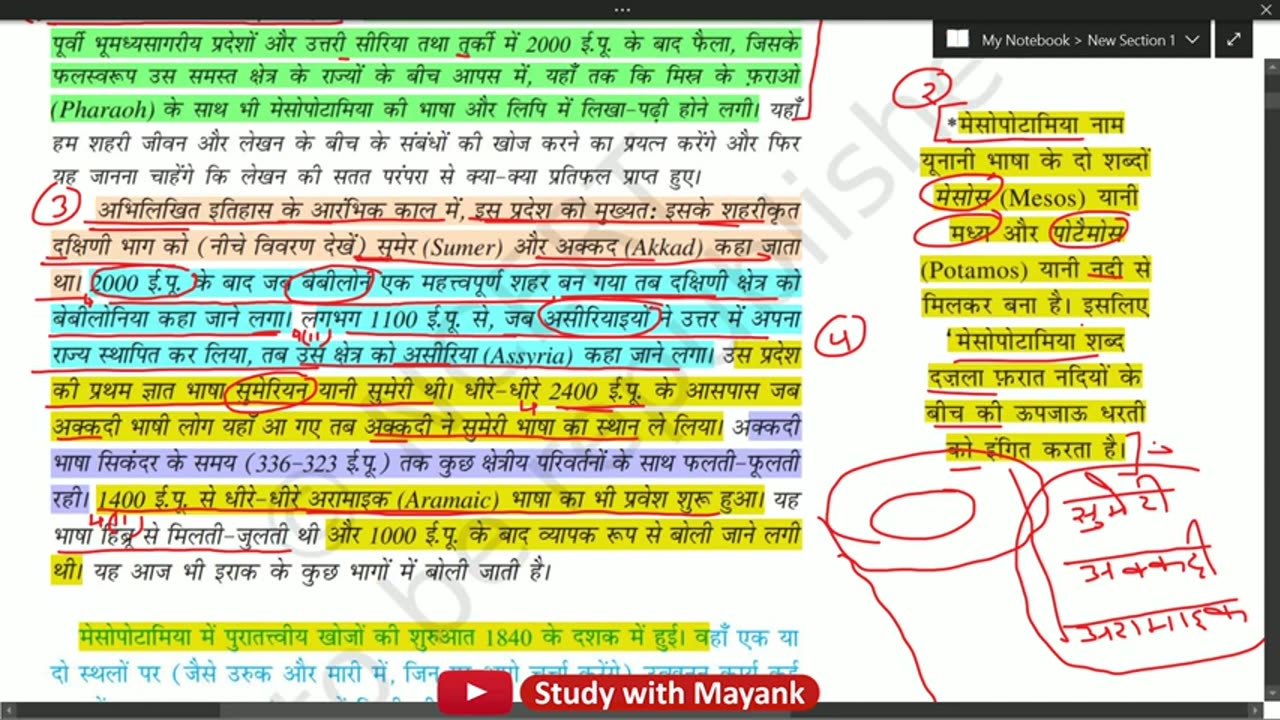 My Notebook > New Section 1
पूर्वी भूमध्यसागरीय प्रदेशों और उत्तरी सीरिया तथा तुर्की में 2000 ई.पू. के बाद फैला, जिसके
फलस्वरूप उस समस्त क्षेत्र के राज्यों के बीच आपस में, यहाँ तक कि मिस्र के फ़राओ
(Pharaoh) के साथ भी मेसोपोटामिया की भाषा और लिपि में लिखा-पढ़ी होने लगी। यहाँ
हम शहरी जीवन और लेखन के बीच के संबंधों की खोज करने का प्रयत्न करेंगे और फिर
यह जानना चाहेंगे कि लेखन की सतत परंपरा से क्या-क्या प्रतिफल प्राप्त हुए।
3
अभिलिखित इतिहास के आरंभिक काल में, इस प्रदेश को मुख्यतः इसके शहरीकृत
दक्षिणी भाग को (नीचे विवरण देखें) सुमेर (Sumer) और अक्कद (Akkad) कहा जाता
था। 2000 ई.पू. के बाद जब बेबीलोन एक महत्त्वपूर्ण शहर बन गया तब दक्षिणी क्षेत्र को
बेबीलोनिया कहा जाने लगा। लगभग 1100 ई.पू. से, जब असीरियाइयों ने उत्तर में अपना
राज्य स्थापित कर लिया, तब उस क्षेत्र को असीरिया (Assyria) कहा जाने लगा। उस प्रदेश
की प्रथम ज्ञात भाषा सुमेरियन यानी सुमेरी थी। धीरे-धीरे 2400 ई.पू. के आसपास जब
अक्कदी भाषी लोग यहाँ आ गए तब अक्कदी ने सुमेरी भाषा का स्थान ले लिया। अक्कदी
भाषा सिकंदर के समय (336-323 ई.पू.) तक कुछ क्षेत्रीय परिवर्तनों के साथ फलती-फूलती
रही। 1400 ई.पू. से धीरे-धीरे अरामाइक (Aramaic) भाषा का भी प्रवेश शुरू हुआ। यह
भाषा हिब्रू से मिलती-जुलती थी और 1000 ई.पू. के बाद व्यापक रूप से बोली जाने लगी
थी। यह आज भी इराक के कुछ भागों में बोली जाती है।
मेसोपोटामिया में पुरातत्त्वीय खोजों की शुरुआत 1840 के दशक में हुई। वहाँ एक या
दो स्थलों पर (जैसे उरुक और मारी में, जिन
2
*मेसोपोटामिया नाम
यूनानी भाषा के दो शब्दों
मेसोस (Mesos) यानी
मध्य और पोटैमोस
(Potamos) यानी नदी से
मिलकर बना है। इसलिए
'मेसोपोटामिया शब्द
दज़ला फ़रात नदियों के
बीच की उपजाऊ धरती
को इंगित करता है।
4
सुमेरी
अक्कदी
अरामाइक
Study with Mayank